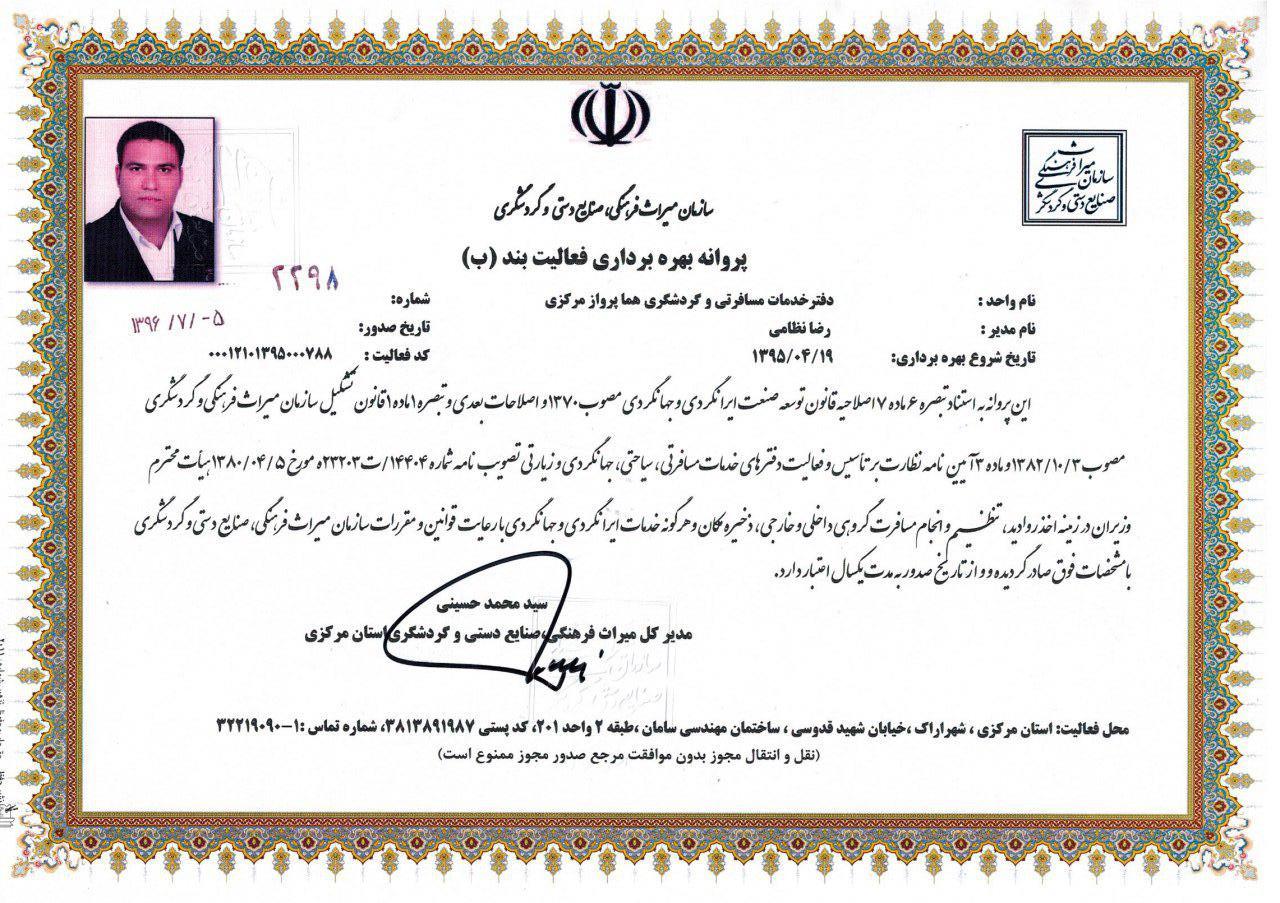 سازمان میراث فرهنگی
صنایع دستی و گردشگری
سازمان میراث فرهنگی، صنایع دستی و گردشگری
پروانه بهره برداری فعالیت بند (ب)
نام واحد : دفترخدمات مسافرتی و گردشگری هما پرواز مرکزی شماره: ۲۲۹۸
نام مدیر : رضا نظامی تاریخ صدور: ۱۳۹۶/۷/-۵
تاریخ شروع بهره برداری: ۱۳۹۵/۰۴/۱۹ کد فعالیت : ۰۰۰۱۲۱۰۱۳۹۵۰۰۰۷۸۸
این پروانه به استناد تبصره ۶ ماده ۷ اصلاحیه قانون توسعه صنعت ایرانگردی و جهانگردی مصوب ۱۳۷۰ و اصلاحات بعدی و تبصره ۱ ماده ۱ قانون تشکیل سازمان میراث فرهنگی و گردشگری
مصوب ۱۳۸۲/۱۰/۳ و ماده ۳ آیین نامه نظارت بر تأسیس و فعالیت دفترهای خدمات مسافرتی، سیاحتی، جهانگردی و زیارتی تصویب نامه شماره ۱۴۴۰۴/ت۲۳۲۰۳ه مورخ ۱۳۸۰/۰۴/۵ هیأت محترم
وزیران در زمینه اخذ روادید، تنظیم و انجام مسافرت گروهی داخلی و خارجی، ذخیره مکان و هرگونه خدمات ایرانگردی و جهانگردی با رعایت قوانین و مقررات سازمان میراث فرهنگی، صنایع دستی و گردشگری
با مشخصات فوق صادر گردیده و و از تاریخ صدور به مدت یکسال اعتبار دارد.
سید محمد حسینی
مدیر کل میراث فرهنگی،صنایع دستی و گردشگری استان مرکزی
محل فعالیت: استان مرکزی ، شهراراک ،خیابان شهید قدوسی ، ساختمان مهندسی سامان ،طبقه ۲ واحد ۲۰۱، کد پستی ۳۸۱۳۸۹۱۹۸۷، شماره تماس :۱-۳۲۲۱۹۰۹۰
(نقل و انتقال مجوز بدون موافقت مرجع صدور مجوز ممنوع است)